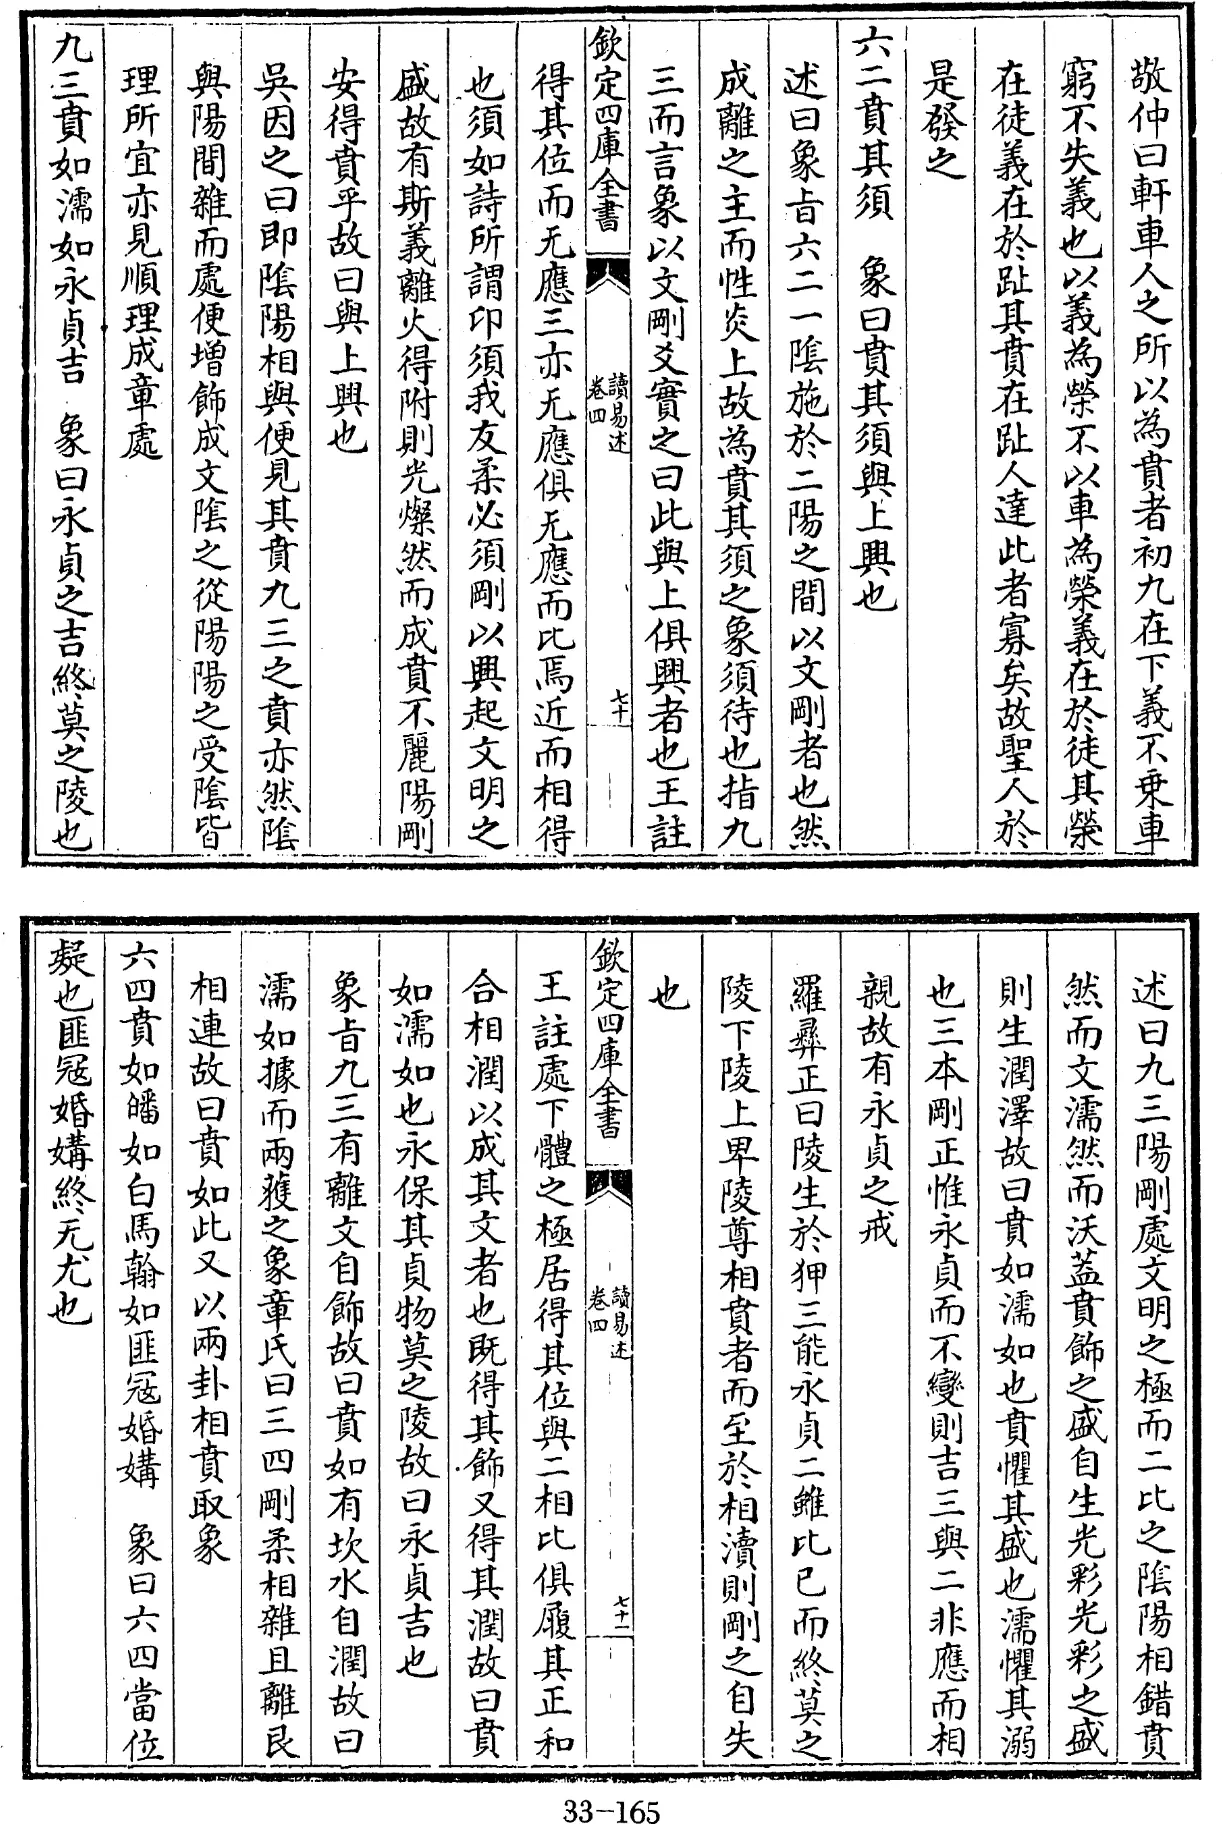 敬仲曰軒車人之所以為賁者初九在下義不乗車
窮不失義也以義為榮不以車為榮義在於徒其榮
在徒義在於趾其賁在趾人達此者寡矣故聖人於
是發之
六二賁其須　象曰賁其須與上興也
述曰象旨六二一隂施於二陽之間以文剛者也然
成離之主而性炎上故為賁其須之象須待也指九
三而言象以文剛爻實之曰此與上俱興者也王註
欽定四庫全書
讀易述
卷四
七十
得其位而无應三亦无應俱无應而比焉近而相得
也須如詩所謂卬須我友柔必須剛以興起文明之
盛故有斯義離火得附則光燦然而成賁不麗陽剛
安得賁乎故曰與上興也
吳因之曰即隂陽相與便見其賁九三之賁亦然隂
與陽間雜而處便增飾成文隂之從陽陽之受隂皆
理所宜亦見順理成章處
九三賁如濡如永貞吉　象曰永貞之吉終莫之陵也
述曰九三陽剛處文明之極而二比之隂陽相錯賁
然而文濡然而沃蓋賁飾之盛自生光彩光彩之盛
則生潤澤故曰賁如濡如也賁懼其盛也濡懼其溺
也三本剛正惟永貞而不變則吉三與二非應而相
親故有永貞之戒
羅彝正曰陵生於狎三能永貞二雖比已而終莫之
陵下陵上卑陵尊相賁者而至於相瀆則剛之自失
也
欽定四庫全書
讀易述
卷四
七十一
王註處下體之極居得其位與二相比俱履其正和
合相潤以成其文者也既得其飾又得其潤故曰賁
如濡如也永保其貞物莫之陵故曰永貞吉也
象旨九三有離文自飾故曰賁如有坎水自潤故曰
濡如據而兩獲之象章氏曰三四剛柔相雜且離艮
相連故曰賁如此又以兩卦相賁取象
六四賁如皤如白馬翰如匪冦婚媾　象曰六四當位
疑也匪冦婚媾終无尤也
33-165